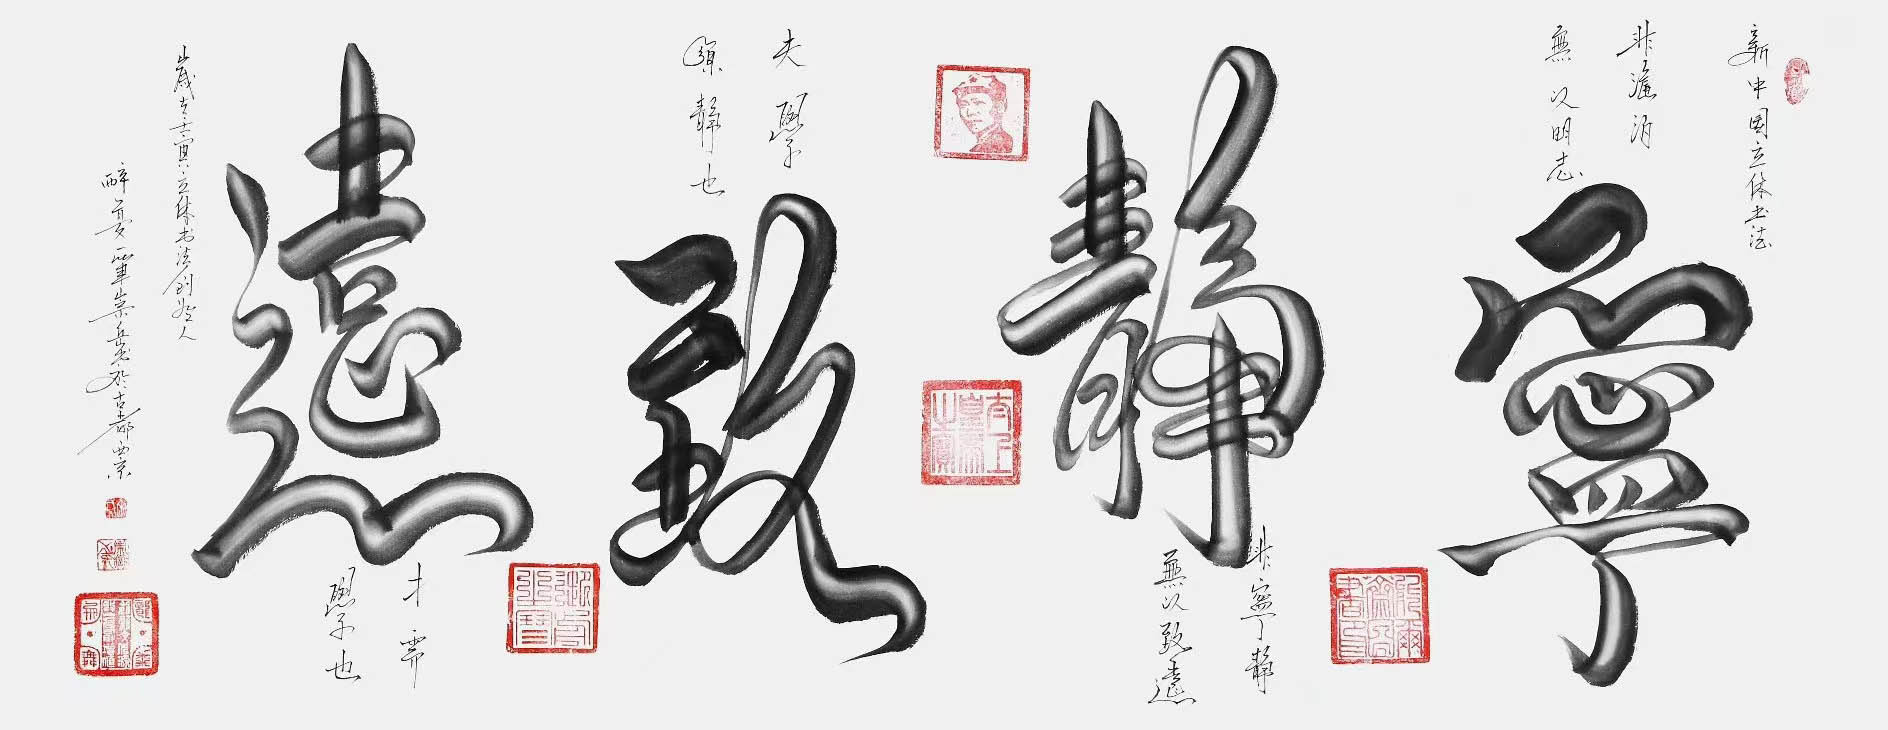 新中国立体书法
非澹泊
無以明志
寧靜致遠
非寧靜
無以致遠
夫學
須靜也
才需
學也
歲在壬寅立体书法创始人
崇岳书於古都西京